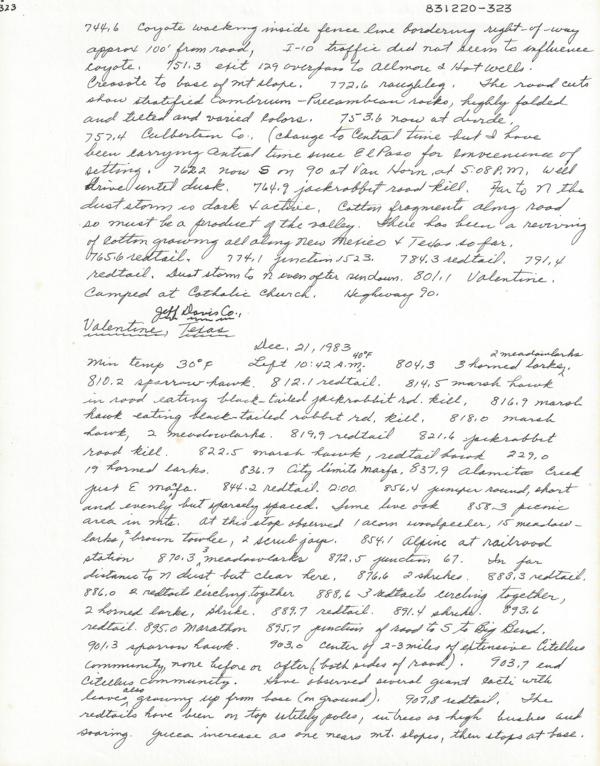 323
831220-323
744.6 Coyote walking inside fence line bordering right-of-way
approx 100' from road, I-10 traffic did not seem to influence
coyote. 751.3 exit 129 overpass to Allmore & Hot Wells.
Creosote to base of mt slope. 772.6 roughleg. The road cuts
show stratified Cambrium-Precambean rocks, highly folded
and tilted and varied colors. 753.6 now at divide.
757.4 Culbertson Co. (change to Central time but I have
been carrying Central time since El Paso for convenience of
setting. 762.2 now S on 90 at Van Horn at 5:08 P.M. Will
drive until dusk. 764.9 jackrabbit road kill. Far to N the
dust storm is dark & active. Cotton fragments along road
so must be a product of the valley. There has been a reviving
of cotton growing all along New Mexico & Texas so far.
765.6 redtail. 774.1 junction 1523. 784.3 redtail. 791.4
redtail. Dust storm to N even after sundown. 801.1 Valentine.
Camped at Catholic Church. Highway 90.
Jeff Davis Co.,
Valentine, Texas
Dec. 21, 1983
Min temp 30°F Left 10:42 A.M. 40°F 804.3 3 horned larks, 2 meadowlarks
810.2 sparrow hawk. 812.1 redtail. 814.5 marsh hawk
in road eating black-tailed jackrabbit rd. kill, 816.9 marsh
hawk eating black-tailed rabbit rd. kill. 818.0 marsh
hawk, 2 meadowlarks. 819.9 redtail 821.6 jackrabbit
road kill. 822.5 marsh hawk, redtail hawk 229.0
19 horned larks. 836.7 City limits Marfa. 837.9 Alamito Creek
just E Marfa. 844.2 redtail. 2:00. 856.4 juniper round, short
and evenly but sparsely spaced. Some live oak 858.3 picnic
area in mts. At this stop observed 1 acorn woodpecker, 15 meadow-
larks, 2 brown towhee, 2 scrub jays. 854.1 Alpine at railroad
station 870.3 3 meadowlarks 872.5 junction 67. In far
distance to N dust but clear here. 876.6 2 shrikes. 883.3 redtail.
886.0 2 redtails circling together 888.6 3 redtails circling together,
2 horned larks, shrike. 889.7 redtail. 891.4 shrike. 893.6
redtail. 895.0 Marathon 895.7 junction of road to S to Big Bend.
901.3 sparrow hawk. 903.0 center of 2-3 miles of extensive Citellus
community, none before or after (both sides of road). 903.7 end
Citellus community. Have observed several giant cacti with
leaves also growing up from base (on ground). 907.8 redtail. The
redtails have been on top utility poles, in trees or high bushes and
soaring. Yucca increase as one nears mt. slopes, then stops at base.